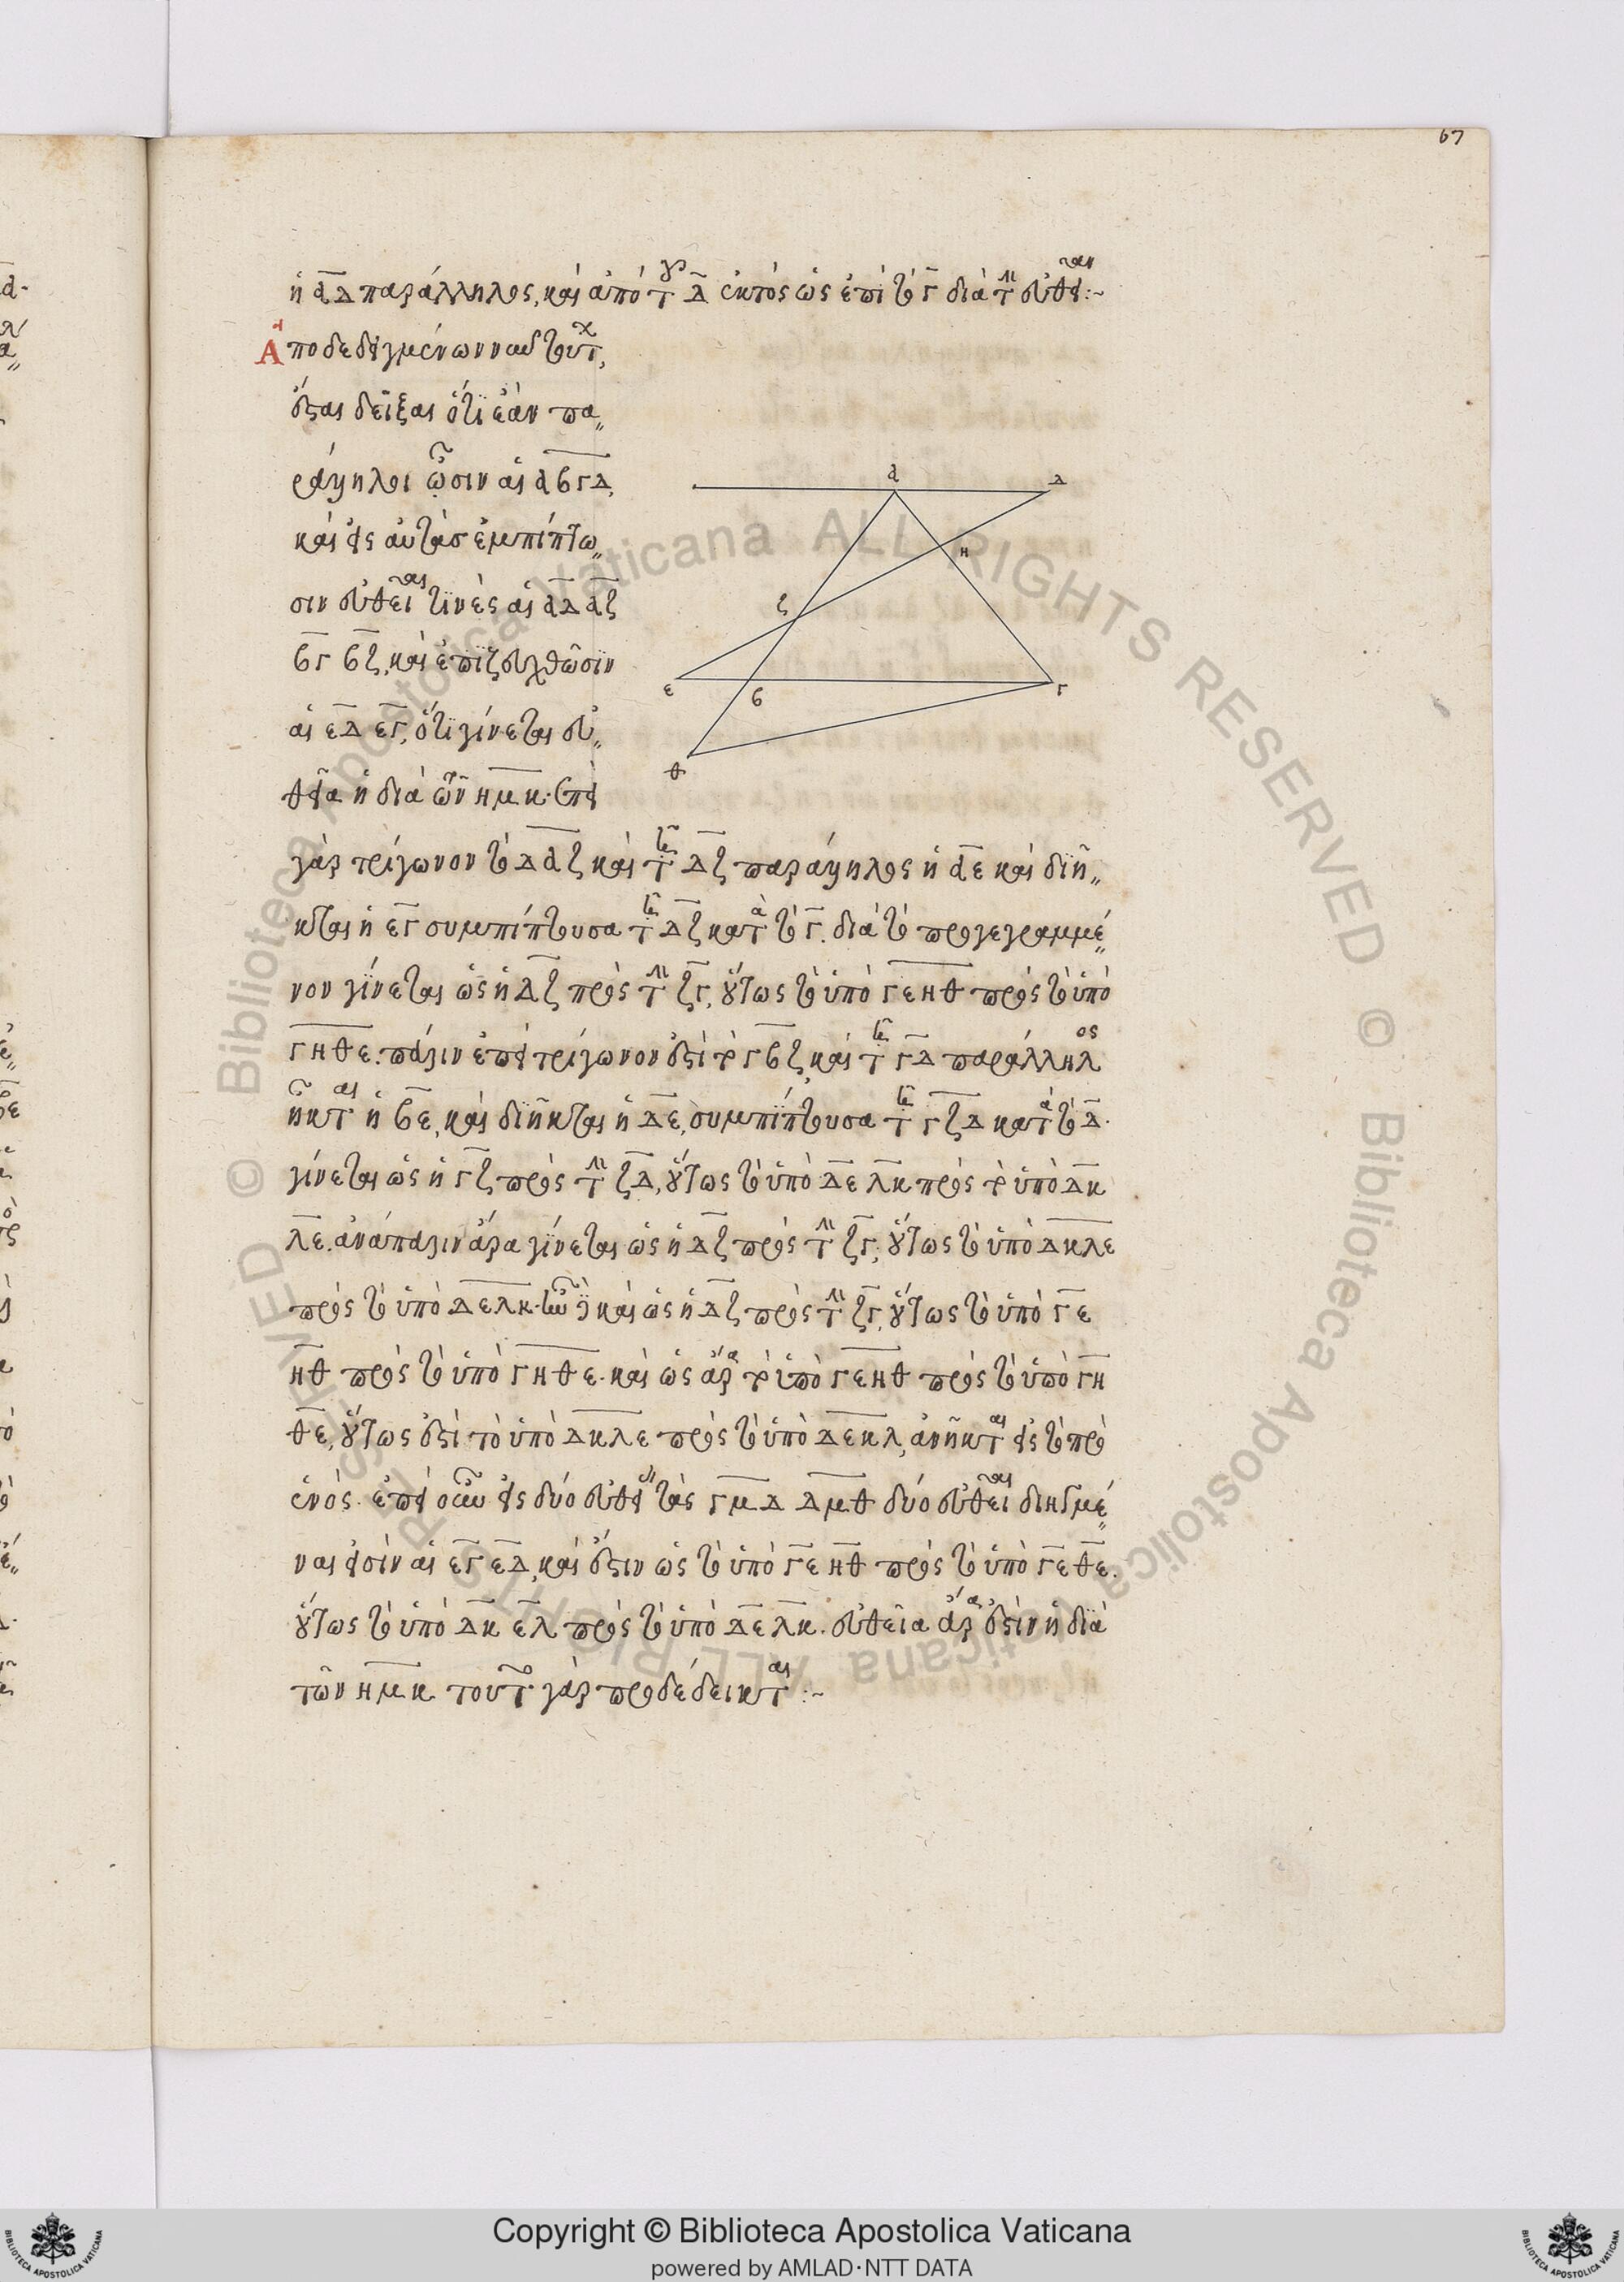 67
ἡ αΔ παράλληλος, καὶ ἀπὸ τοῦ Δ ἐκτὸς ὡς ἐπὶ τὸ Γ διὰ τὴν εὐθεῖαν :~
Ἀποδεδειγμένων νῦν τούτων,
ἔσται δεῖξαι ὅτι ἐὰν πα〃
ράλληλοι ὦσιν αἱ αβ ΓΔ,
καὶ εἰς αὐτὰς ἐμπίπτω〃
σιν εὐθεῖαι τινὲς αἱ αΔ αζ
βΓ βζ, καὶ ἐπιζευχθῶσιν
αἱ εΔ εΓ, ὅτι γίνεται εὐ〃
θεῖα ἡ διὰ τῶν ημκ. ἐπεὶ
γὰρ τρίγωνον τὸ Δαζ καὶ τῇ Δζ παράλληλος ἡ αε καὶ διῆ〃
κται ἡ εΓ συμπίπτουσα τῇ Δζ κατὰ τὸ Γ. διὰ τὸ προγεγραμμέ〃
νον γίνεται ὡς ἡ Δζ πρὸς τὴν ζΓ, οὕτως τὸ ὑπὸ Γεηθ πρὸς τὸ ὑπὸ
Γηθε. πάλιν ἐπεὶ τρίγωνον ἐστὶ τὸ Γβζ, καὶ τῇ ΓΔ παράλληλος
ἦκται ἡ βε, καὶ διῆκται ἡ Δε, συμπίπτουσα τῇ ΓζΔ κατὰ τὸ Δ.
γίνεται ὡς ἡ Γζ πρὸς τὴν ζΔ, οὕτως τὸ ὑπὸ Δε λκ πρὸς τὸ ὑπὸ Δκ
λε. ἀνάπαλιν ἄρα γίνεται ὡς ἡ Δζ πρὸς τὴν ζΓ, οὕτως τὸ ὑπὸ Δκλε
πρὸς τὸ ὑπὸ Δελκ. ἦν δὲ καὶ ὡς ἡ Δζ πρὸς τὴν ζΓ, οὕτως τὸ ὑπὸ Γε
ηθ πρὸς τὸ ὑπὸ Γηθε. καὶ ὡς ἄρα τὸ ὑπὸ Γεηθ πρὸς τὸ ὑπὸ Γη
θε, οὕτως ἐστὶ τὸ ὑπὸ Δκλε πρὸς τὸ ὑπὸ Δεκλ, ἀνῆκται εἰς τὸ πρὸ
ἑνός. ἐπεὶ οὖν εἰς δύο εὐθείας τὰς ΓμΔ Δμθ δύο εὐθεῖαι διηγμέ〃
ναι εἰσὶν αἱ εΓ εΔ, καὶ ἔστιν ὡς τὸ ὑπὸ Γε ηθ πρὸς τὸ ὑπὸ Γε θε.
οὕτως τὸ ὑπὸ Δκ ελ πρὸς τὸ ὑπὸ Δε λκ. εὐθεῖα ἄρα ἐστὶν ἡ διὰ
τῶν ημκ τοῦτο γὰρ προδέδεικται :~
α Δ
η
ζ
ε β Γ
θ
© Biblioteca Apostolica Vaticana ALL RIGHTS RESERVED © Biblioteca Apostolica Vaticana ALL RIGHTS RESERVED
Copyright © Biblioteca Apostolica Vaticana
powered by AMLAD·NTT DATA
BIBLIOTECA APOSTOLICA VATICANA
BIBLIOTECA APOSTOLICA VATICANA